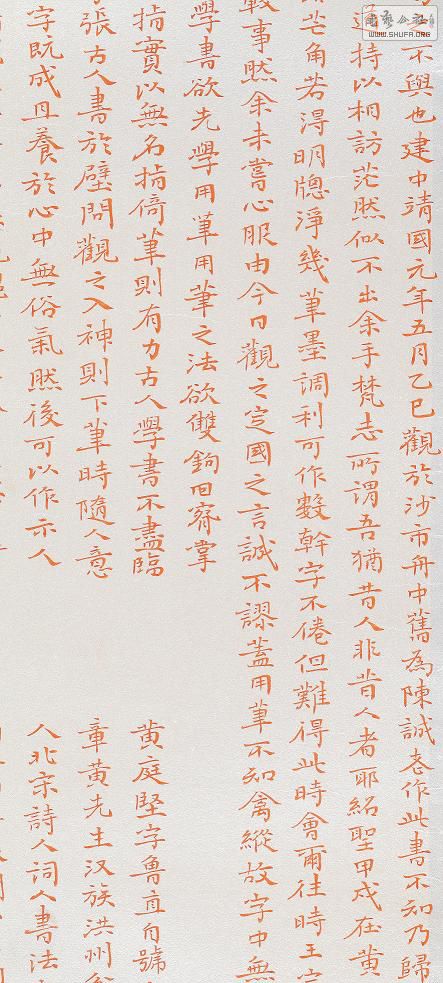 不與也建中靖國元年五月乙巳觀於沙市舟中舊為陳誠老作此書不知乃歸
道持以相訪茫然似不出余手梵志所謂吾猶昔人非昔人者耶紹聖甲戌在黃
芒角若得明牕淨幾筆墨調利可作數幹字不倦但難得此時會爾往時王
戰事然余未嘗心服由今日觀之定國之言誠不謬蓋用筆不知禽縱故字中無
學書欲先學用筆用筆之法欲雙鉤回掌
指實以無名指倚筆則有力古人學書不盡臨
張古人書於壁間觀之入神則下筆時隨人意
字既成且養於心中無俗氣然後可以作示人
黃庭堅字魯直自號
章黃先生汉族洪州
人北宋詩人詞人書法
WWW.SHUFA.ORG